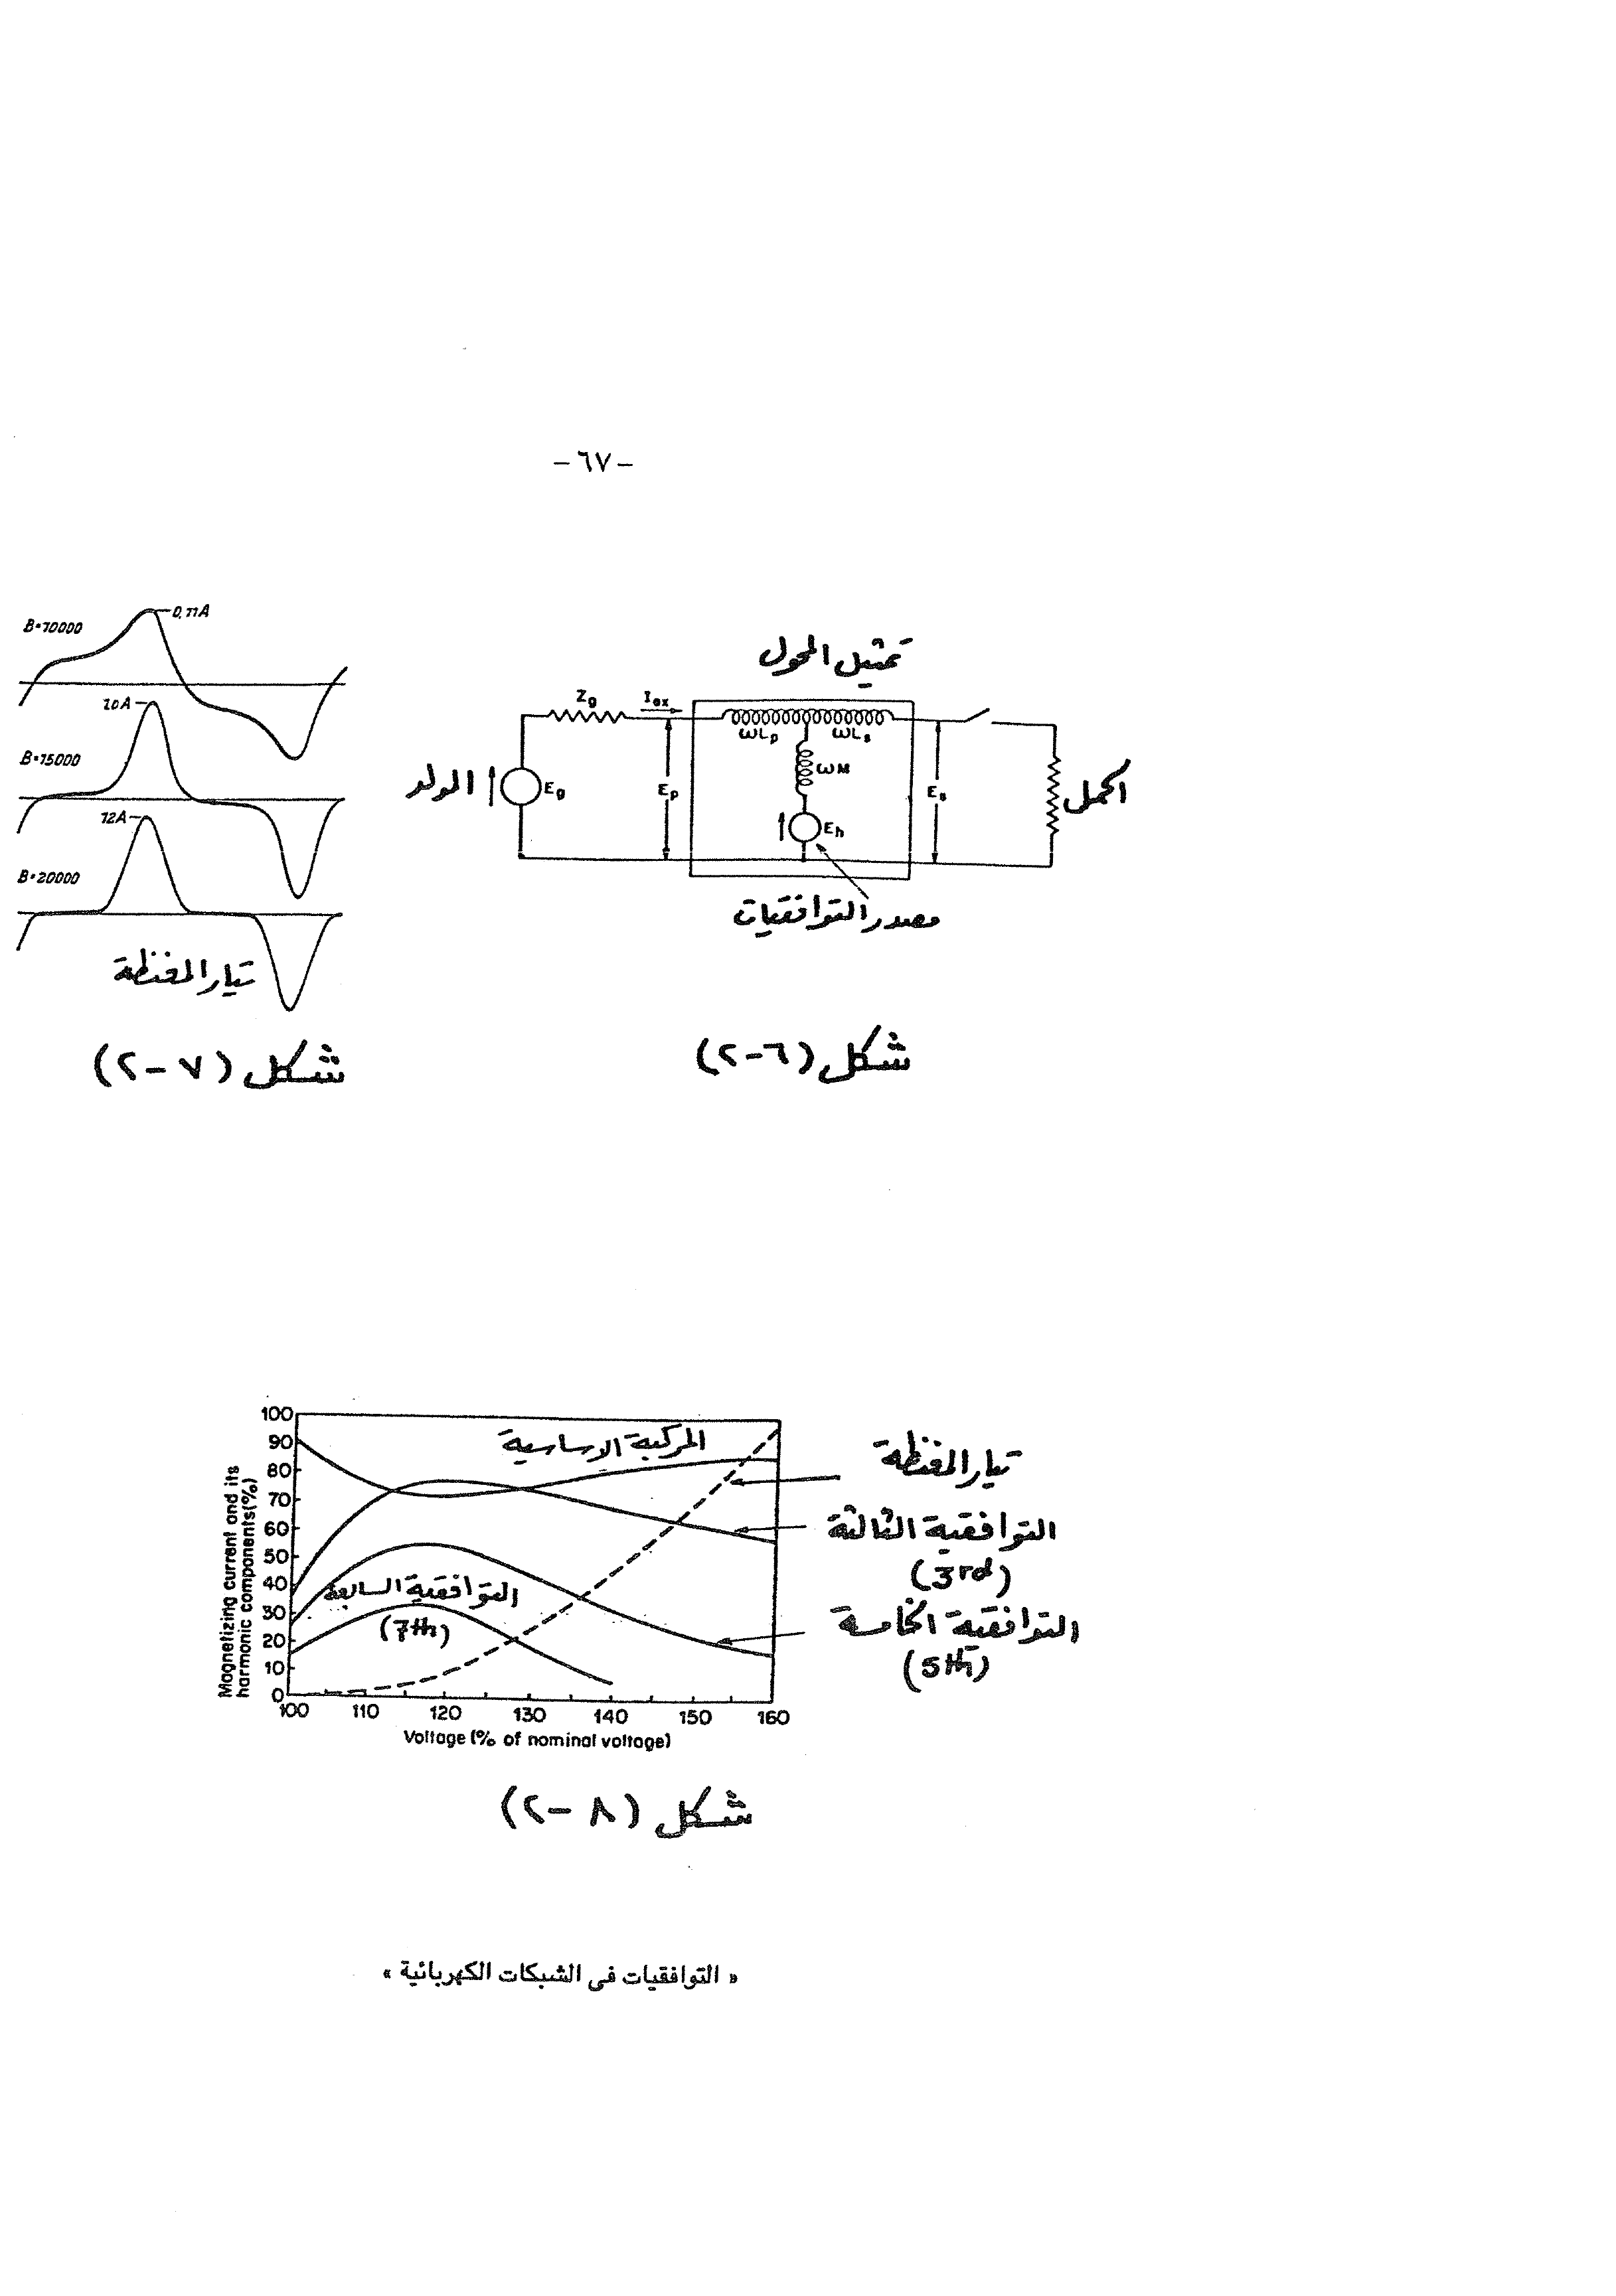 -٦٧-
B=10000
0,11A
10A
B=15000
12A
B=20000
تيار المغنطة
شكل (٧-٢)
تمثيل المحول
Zg
Iex
ωLp
ωLs
ωM
المولد
Eg
Ep
Es
Eh
الحمل
مصدر التوافقيات
شكل (٦-٢)
Magnetizing current and its
harmonic components(%)
100
90
80
70
60
50
40
30
20
10
0
100 110 120 130 140 150 160
Voltage (% of nominal voltage)
المركبة الاساسية
تيار المغنطة
التوافقية الثالثة
(3rd)
التوافقية الخامسة
(5th)
التوافقية السابعة
(7th)
شكل (٨-٢)
« التوافقيات فى الشبكات الكهربائية »